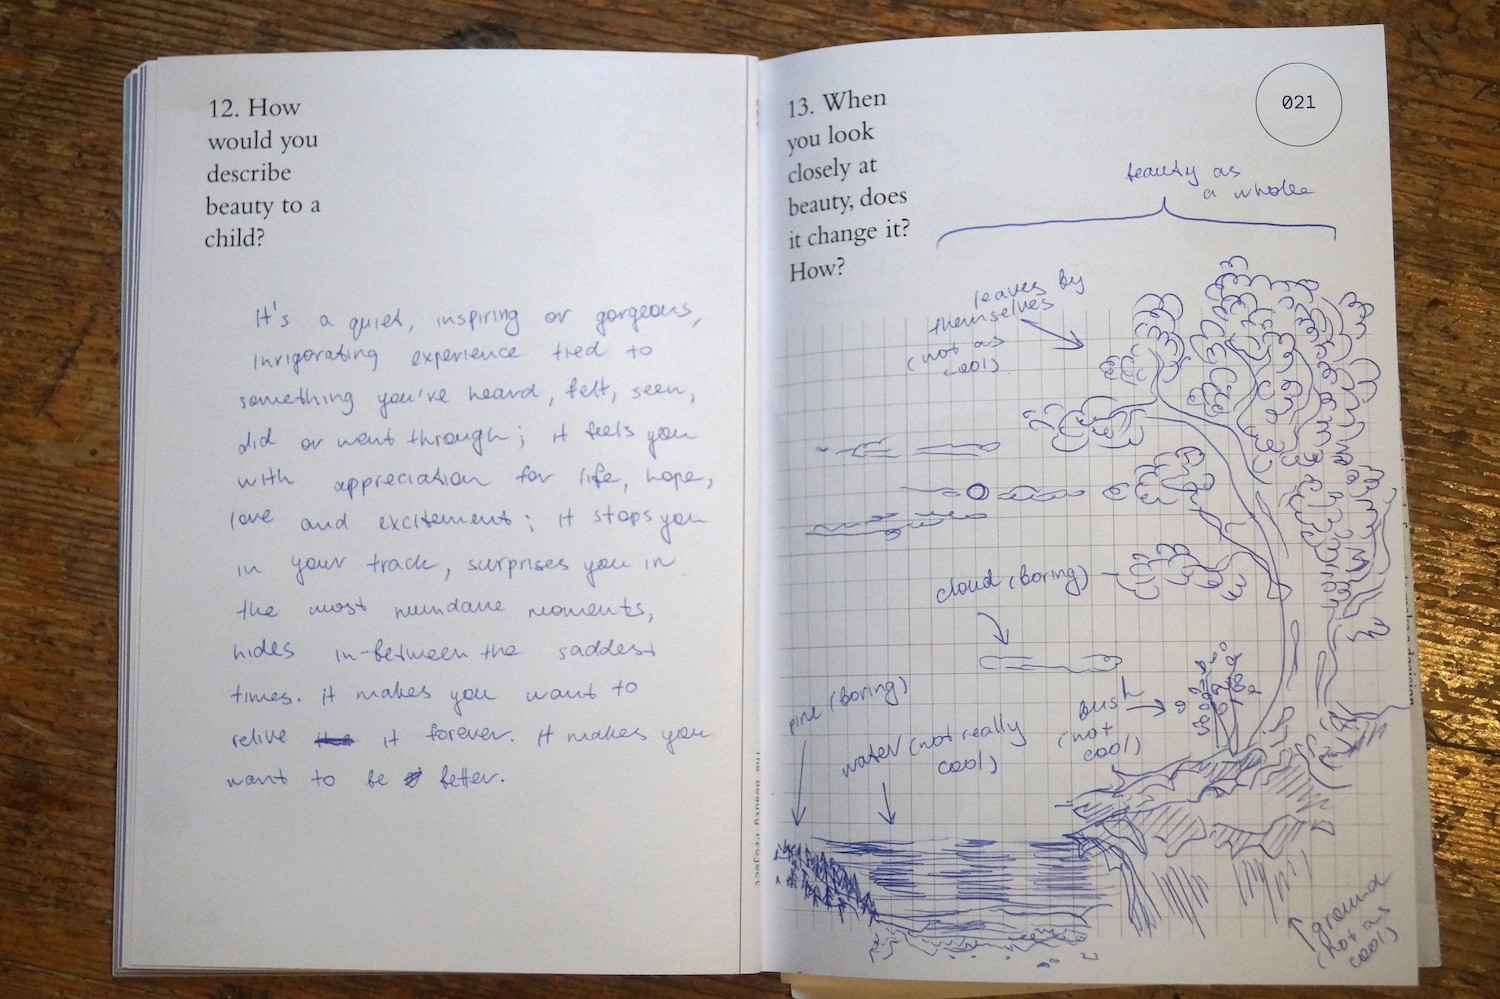 12. How
would you
describe
beauty to a
child?
It's a quiet, inspiring or gorgeous,
invigorating experience tied to
something you've heard, felt, seen,
did or went through; it feels you
with appreciation for life, hope,
love and excitement; it stops you
in your track, surprises you in
the most mundane moments,
hides in-between the saddest
times. it makes you want to
relive it forever. It makes you
want to be better.
The Beauty Project
13. When
you look
closely at
beauty, does
it change it?
How?
021
beauty as
a whole
leaves by
themselves
(not as
cool)
cloud (boring)
pine (boring)
water (not really
cool)
bush
(not
cool)
ground
(not as
cool)